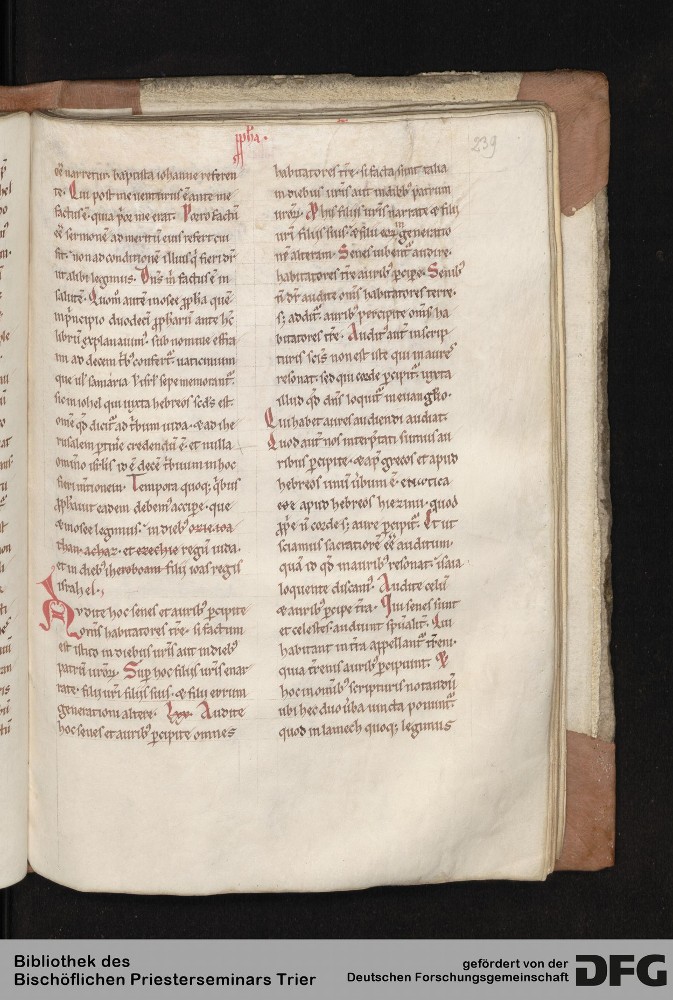 ꝓph̄a.
239
eē narretur. baptista iohanne referen
te. Qui post me uenturus ē ante me
factus ē. quia p̄or me erat. Porro factū
eē sermonē ad meritū eius refert cui
fit. non ad conditionē illius q̄ fieri dr̄
ut alibi legimus. Dn̄s m̄ factus ē in
salutē. Quom̄ autē in osee ꝓph̄a quē
in p̄ncipio duodecī ꝓph̄arū ante hc̄
librū explanauim᷒. sub nomine effra
im ad decem t̄b᷒ confert᷑. uaticinium
que uł samaria ł isrł sepe memorant᷑.
sic in iohel qui iuxta hebreos sc̄ds est
om̄e qd̄ dicit᷑ ad t̄bum iuda. & ad ihe
rusalem ꝑtin̄e credendū ē. et nulla
omnino isrłis id ē decē t̄buum in hoc
fieri m̄tionem. Tempora quoq; q̄bus
ꝓph̄auit eadem debem᷒ accipe. que
& in osee legimus. in dieb᷒ ozie. ioa
than. achaz. et ezechie regū iuda.
et in dieb᷒ iheroboam filii ioas regis
israhel.
Audite hoc senes et aurib᷒ ꝑcipite
om̄s habitatores tr̄e. si factum
est istud in diebus ur̄is aut in dieb᷒
patrū ur̄oꝝ. Suꝑ hoc filiis ur̄is enar
rate. filii ur̄i filiis suis. & filii eorum
generationi altere. Lxx. Audite
hoc senes et aurib᷒ ꝑcipite omnes
habitatores tr̄e. si facta sunt talia
in diebus ur̄is aut in dieb᷒ patrum
ur̄oꝝ. P his filiis ur̄is narrate & filii
ur̄i filiis suis. & filii eoꝝ in generatio
nē alteram. Senes iubent᷑ audire.
habitatores tr̄e aurib᷒ ꝑcipe. Senib᷒
n̄ dr̄ audite om̄s habitatores terre.
s; addit᷑. aurib᷒ percipite om̄s ha
bitatores tr̄e. Audit᷒ aut̄ in scrip
turis sc̄is non est iste qui in aure᷒
resonat. sed qui corde ꝑcipit᷑. iuxta
illud qd̄ dn̄s loquit᷑ in euangł̄io.
Qui habet aures audiendi audiat.
Quod aut̄ nos int̄p̄tati sumus au
ribus ꝑcipite. & ap̄ grecos et apud
hebreos unū ūbum ē.
apud hebreos hiezinu. quod
ꝓp̄e n̄ corde s; aure ꝑcipit᷑. Et ut
sciamus sacratiorē eē auditum.
quā id qd̄ in aurib᷒ resonat. isaia
loquente discam᷒. Audite celū
& aurib᷒ ꝑcipe t̄ra. Qui senes sunt
et celestes. audiunt sp̄ualit᷑. Qui
habitant in t̄ra appellant᷑ t̄reni.
quia t̄renis aurib᷒ ꝑcipiunt. Et
hoc in omib᷒ scripturis notandū
ubi hec duo ūba iuncta ponunt᷑.
quod in lamech quoq; legimus
Bibliothek des
Bischöflichen Priesterseminars Trier
gefördert von der
Deutschen Forschungsgemeinschaft
DFG